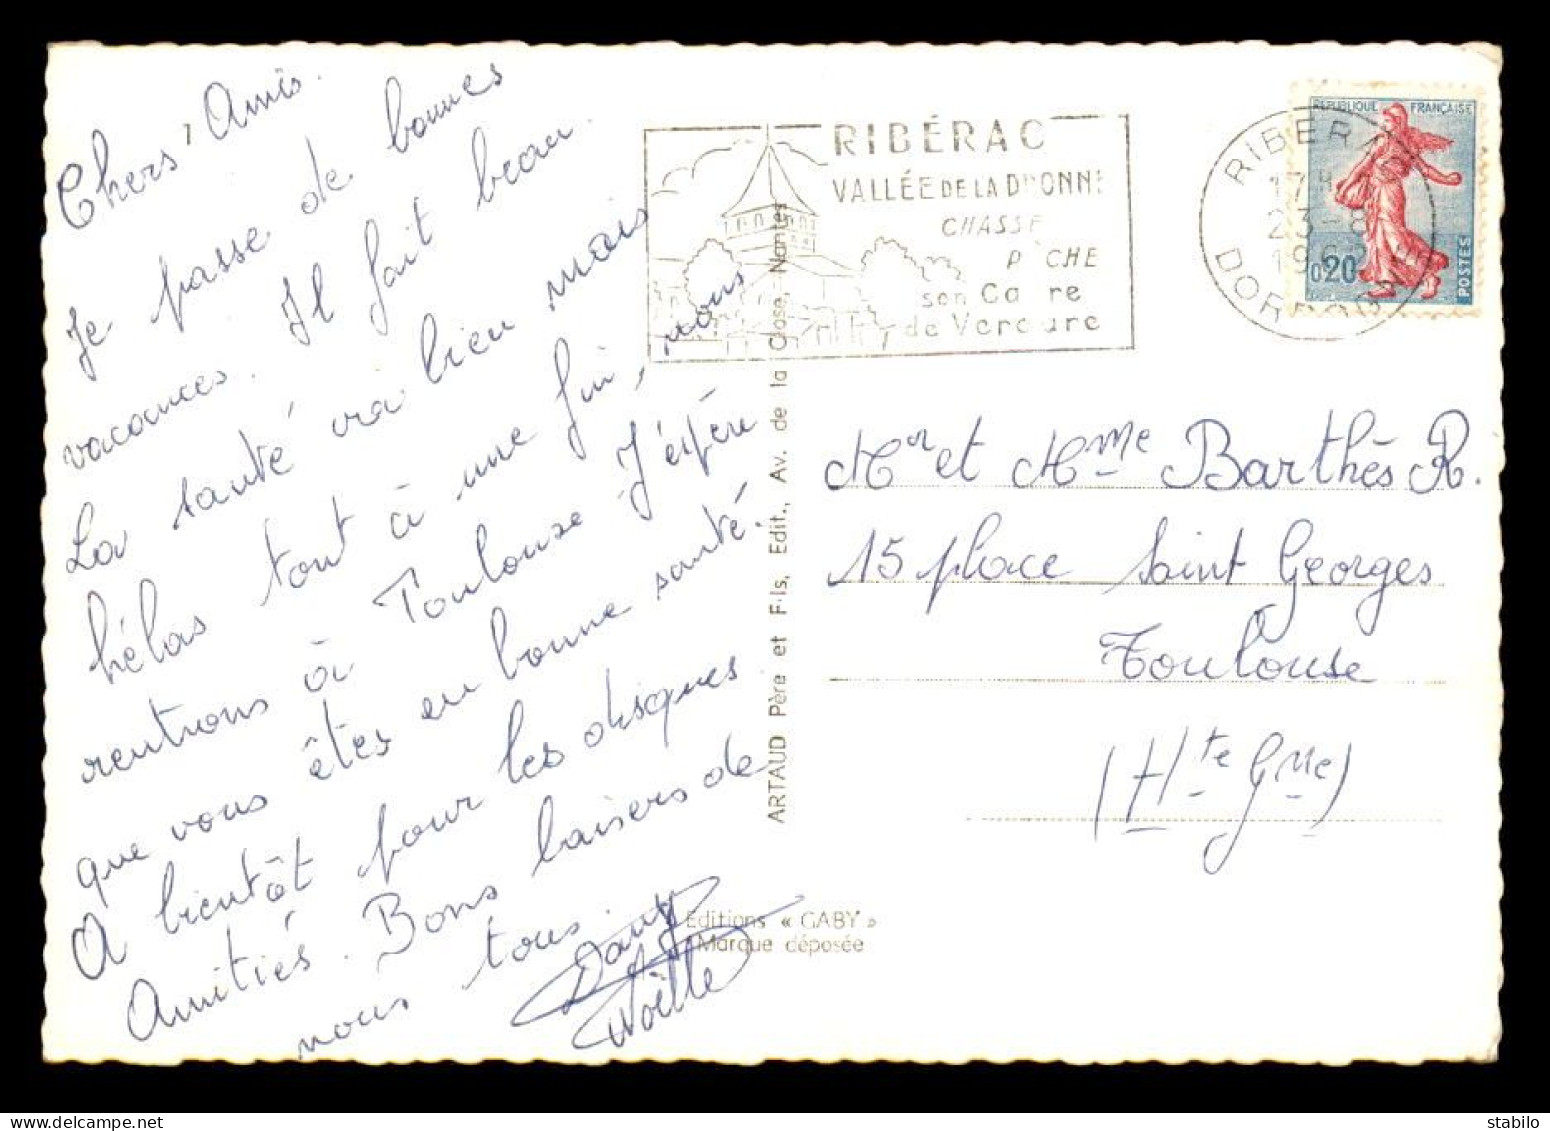 Chers Amis.
Je passe de bonnes
vacances. Il fait beau.
La santé va bien mais
hélas tout à une fin, nous
rentrons à Toulouse J'éspère
que vous êtes en bonne santé.
A bientôt pour les disques
Amitiés. Bons baisers de
nous tous.
Dany
Noëlle
ARTAUD Père et Fils, Edit., Av. de la Close, Nantes
Editions « GABY »
Marque déposée
RIBÉRAC
VALLÉE DE LA DRONNE
CHASSE
PÊCHE
son Cadre
de Verdure
RIBERAC
17H
23-8
196
DORDOGNE
REPUBLIQUE FRANÇAISE
0,20
POSTES
Mr et Mme Barthès R.
15 place Saint Georges
Toulouse
(Hte Gnne)
www.delcampe.net
stabilo